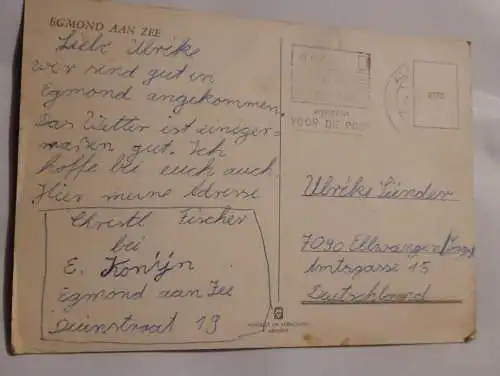 EGMOND AAN ZEE
Liebe Ulrike
wir sind gut in
Egmond angekommen.
Das Wetter ist einiger=
maßen gut. Ich
hoffe bei euch auch.
Hier meine Adresse
Christl Fischer
bei
E. Konijn
Egmond aan Zee
Duinstraat 19
VOOR DIE POST
Ulrike Sünder
7090 Ellwangen/Jagst
Amtsgasse 15
Deutschland